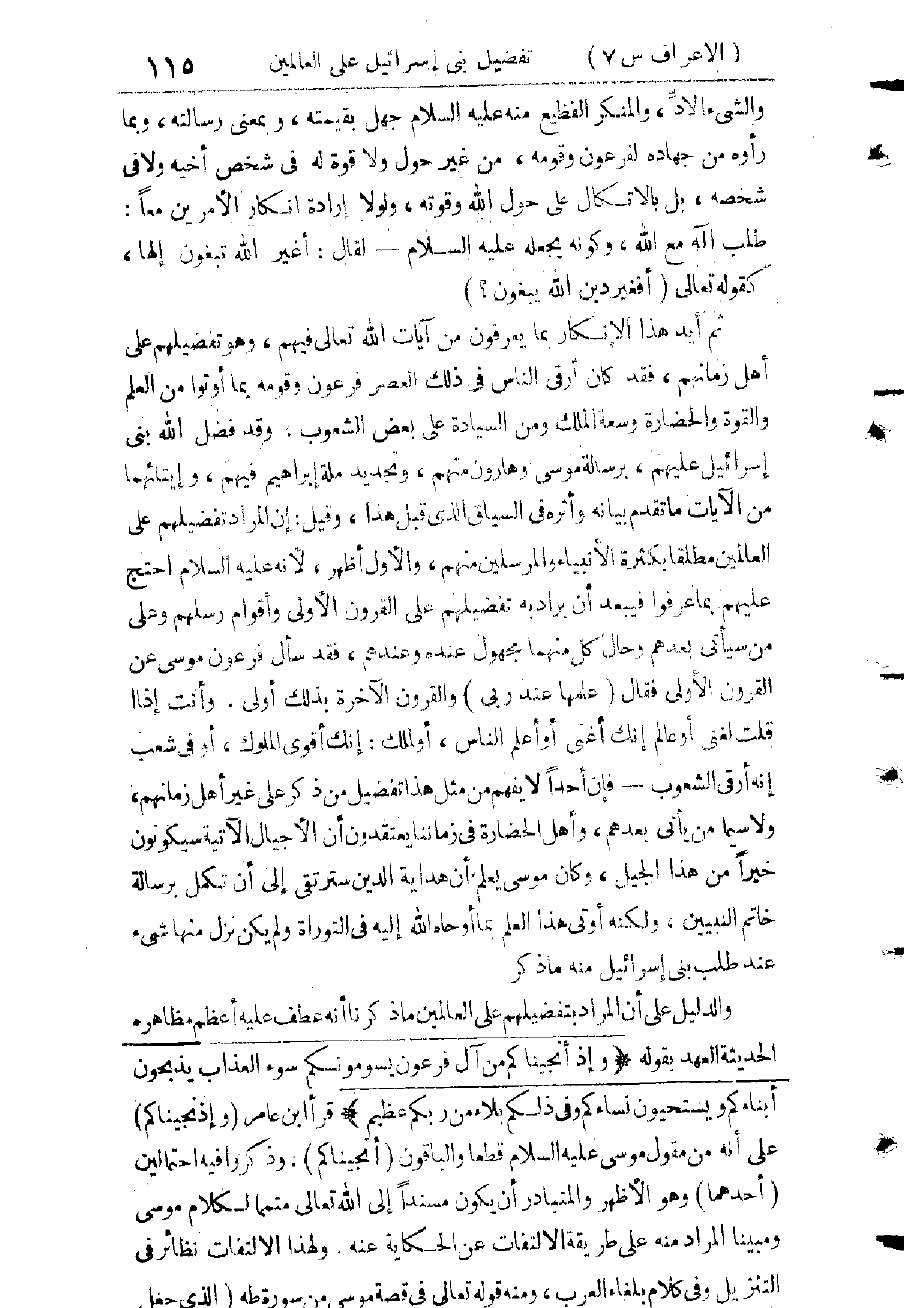 ( الاعراف س ٧ ) تفضيل بنى إسرائيل على العالمين ١١٥
والشىء الادّ ، والمنكر الفظيع منه عليه السلام جهل بقيمته ، و بمعنى رسالته ، وبما
رأوه من جهاده لفرعون وقومه ، من غير حول ولا قوة له فى شخص أخيه ولا فى
شخصه ، بل بالاتكال على حول الله وقوته ، ولولا إرادة انكار الأمرين معاً :
طلب آله مع الله ، وكونه يجعله عليه السلام — لقال : أغير الله تبغون إلها ،
كقوله تعالى ( أفغير دين الله يبغون ؟ )
ثم أيد هذا الإنكار بما يعرفون من آيات الله تعالى فيهم ، وهو تفضيلهم على
أهل زمانهم ، فقد كان أرقى الناس فى ذلك العصر فرعون وقومه بما أوتوا من العلم
والقوة والحضارة وسعة الملك ومن السيادة على بعض الشعوب . وقد فضل الله بنى
إسرائيل عليهم ، برسالة موسى وهارون منهم ، وتجديد ملة إبراهيم فيهم ، و إيتائهما
من الآيات ما تقدم بيانه وأثره فى السياق الذى قبل هذا ، وقيل : إن المراد تفضيلهم على
العالمين مطلقا بكثرة الأنبياء والمرسلين منهم ، والأول أظهر ، لأنه عليه السلام احتج
عليهم بما عرفوا فيبعد أن يراد به تفضيلهم على القرون الأولى وأقوام رسلهم وعلى
من سيأتى بعدهم وحال كل منهما مجهول عنده وعندهم ، فقد سأل فرعون موسى عن
القرون الأولى فقال ( علمها عند ربى ) والقرون الآخرة بذلك أولى . وأنت إذا
قلت لغنى أو عالم إنك أغنى أو أعلم الناس ، أو لملك : إنك أقوى الملوك ، أو فى شعب
إنه أرقى الشعوب — فإن أحداً لا يفهم من مثل هذا تفضيل من ذكر على غير أهل زمانهم ،
ولا سيما من يأتى بعدهم ، وأهل الحضارة فى زماننا يعتقدون أن الأجيال الآتية سيكونون
خيراً من هذا الجيل ، وكان موسى يعلم أن هداية الدين سترتقى إلى أن تكمل برسالة
خاتم النبيين ، ولكنه أوتى هذا العلم بما أوحاه الله إليه فى التوراة ولم يكن نزل منها شىء
عند طلب بنى إسرائيل منه ما ذكر
والدليل على أن المراد بتفضيلهم على العالمين ما ذكرنا أنه عطف عليه أعظم مظاهره
الحديثة العهد بقوله ﴿ و إذ أنجيناكم من آل فرعون يسومونكم سوء العذاب يذبحون
أبناءكم و يستحيون نساءكم وفى ذلكم بلاء من ربكم عظيم ﴾ قرأ ابن عامر ( و إذ نجيناكم )
على أنه من مقول موسى عليه السلام قطعا والباقون ( أنجيناكم ) . وذكروا فيه احتمالين
( أحدهما ) وهو الأظهر والمتبادر أن يكون مسنداً إلى الله تعالى متمما لكلام موسى
ومبينا المراد منه على طريقة الالتفات عن الحكاية عنه . ولهذا الالتفات نظائر فى
التنزيل وفى كلام بلغاء العرب ، ومنه قوله تعالى فى قصة موسى من سورة طه ( الذى جعل